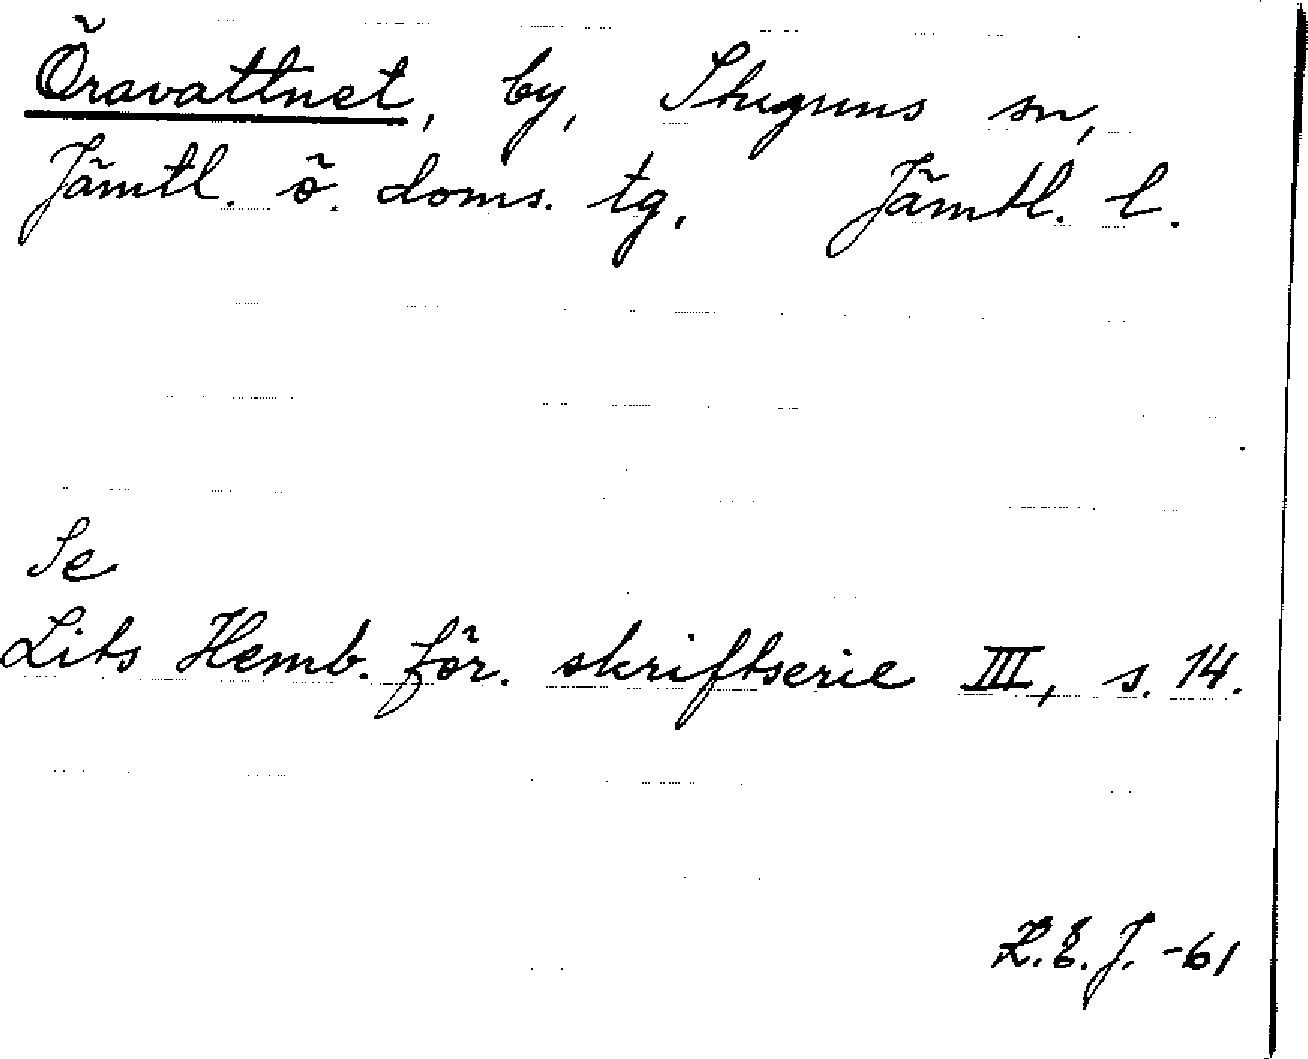 Öravattnet, by, Stuguns sn,
Jämtl. ö. doms. tg, Jämtl. l.
Se
Lits Hemb. för. skriftserie III, s. 14.
R.E.J. -61